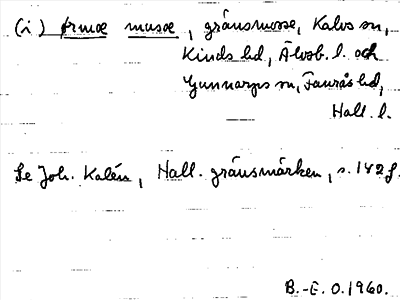 (i) ørmoæ musæ, gränsmosse, Kalvs sn,
Kinds hd, Älvsb. l. och
Gunnarps sn, Faurås hd,
Hall. l.
Se Joh. Kalén, Hall. gränsmärken, s. 142 f.
B.-E. O. 1960.